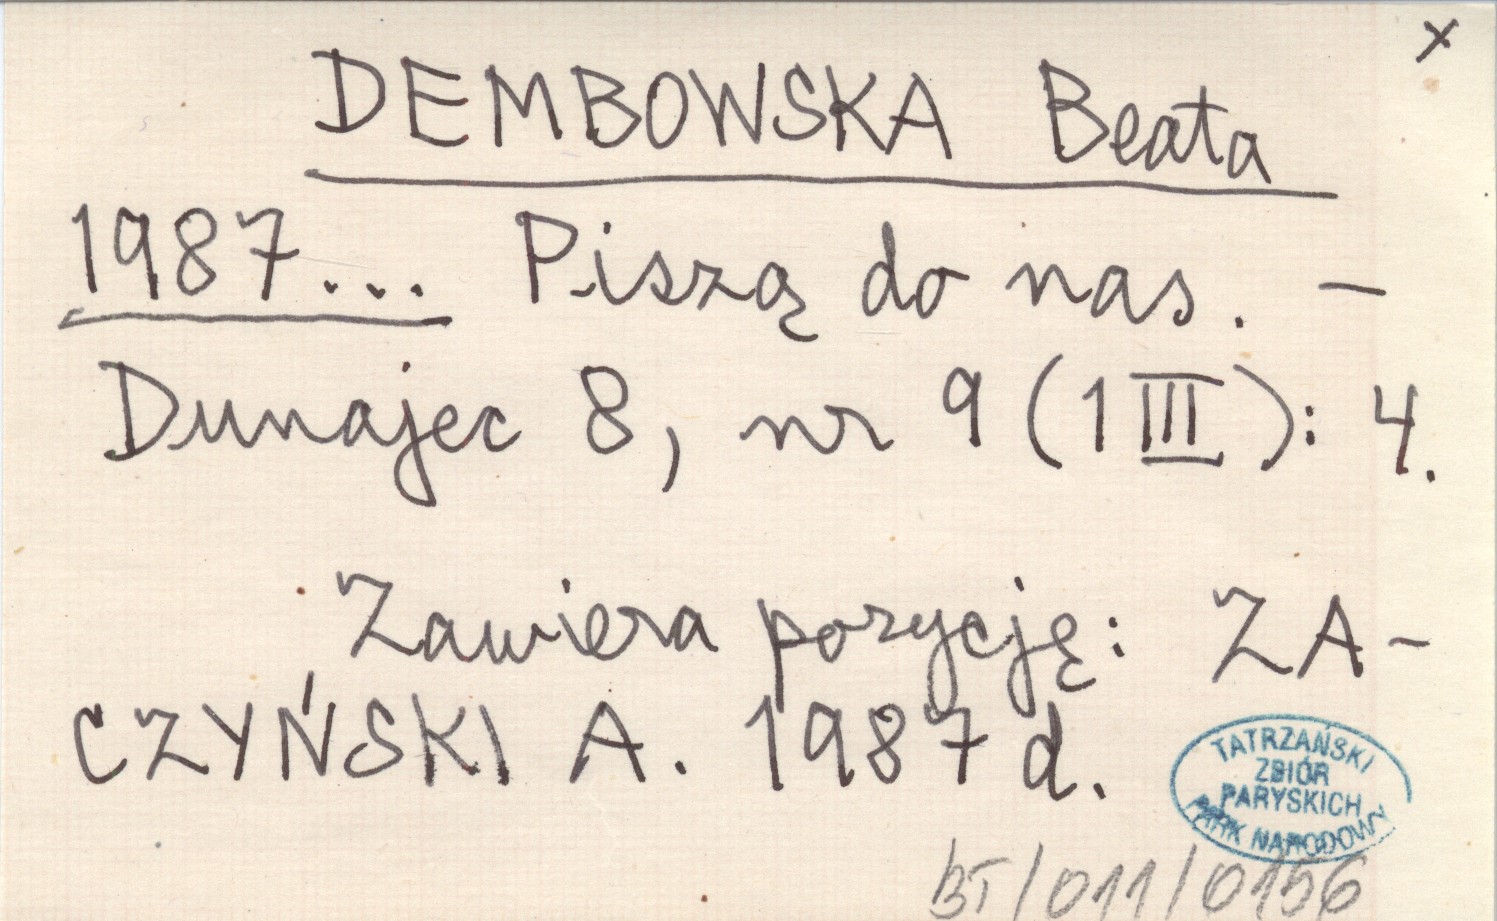 x
DEMBOWSKA Beata
1987... Piszą do nas. –
Dunajec 8, nr 9 (1 III): 4.
Zawiera pozycję: ZA-
CZYŃSKI A. 1987 d.
TATRZAŃSKI
ZBIÓR
PARYSKICH
PARK NARODOWY
BT/011/0156